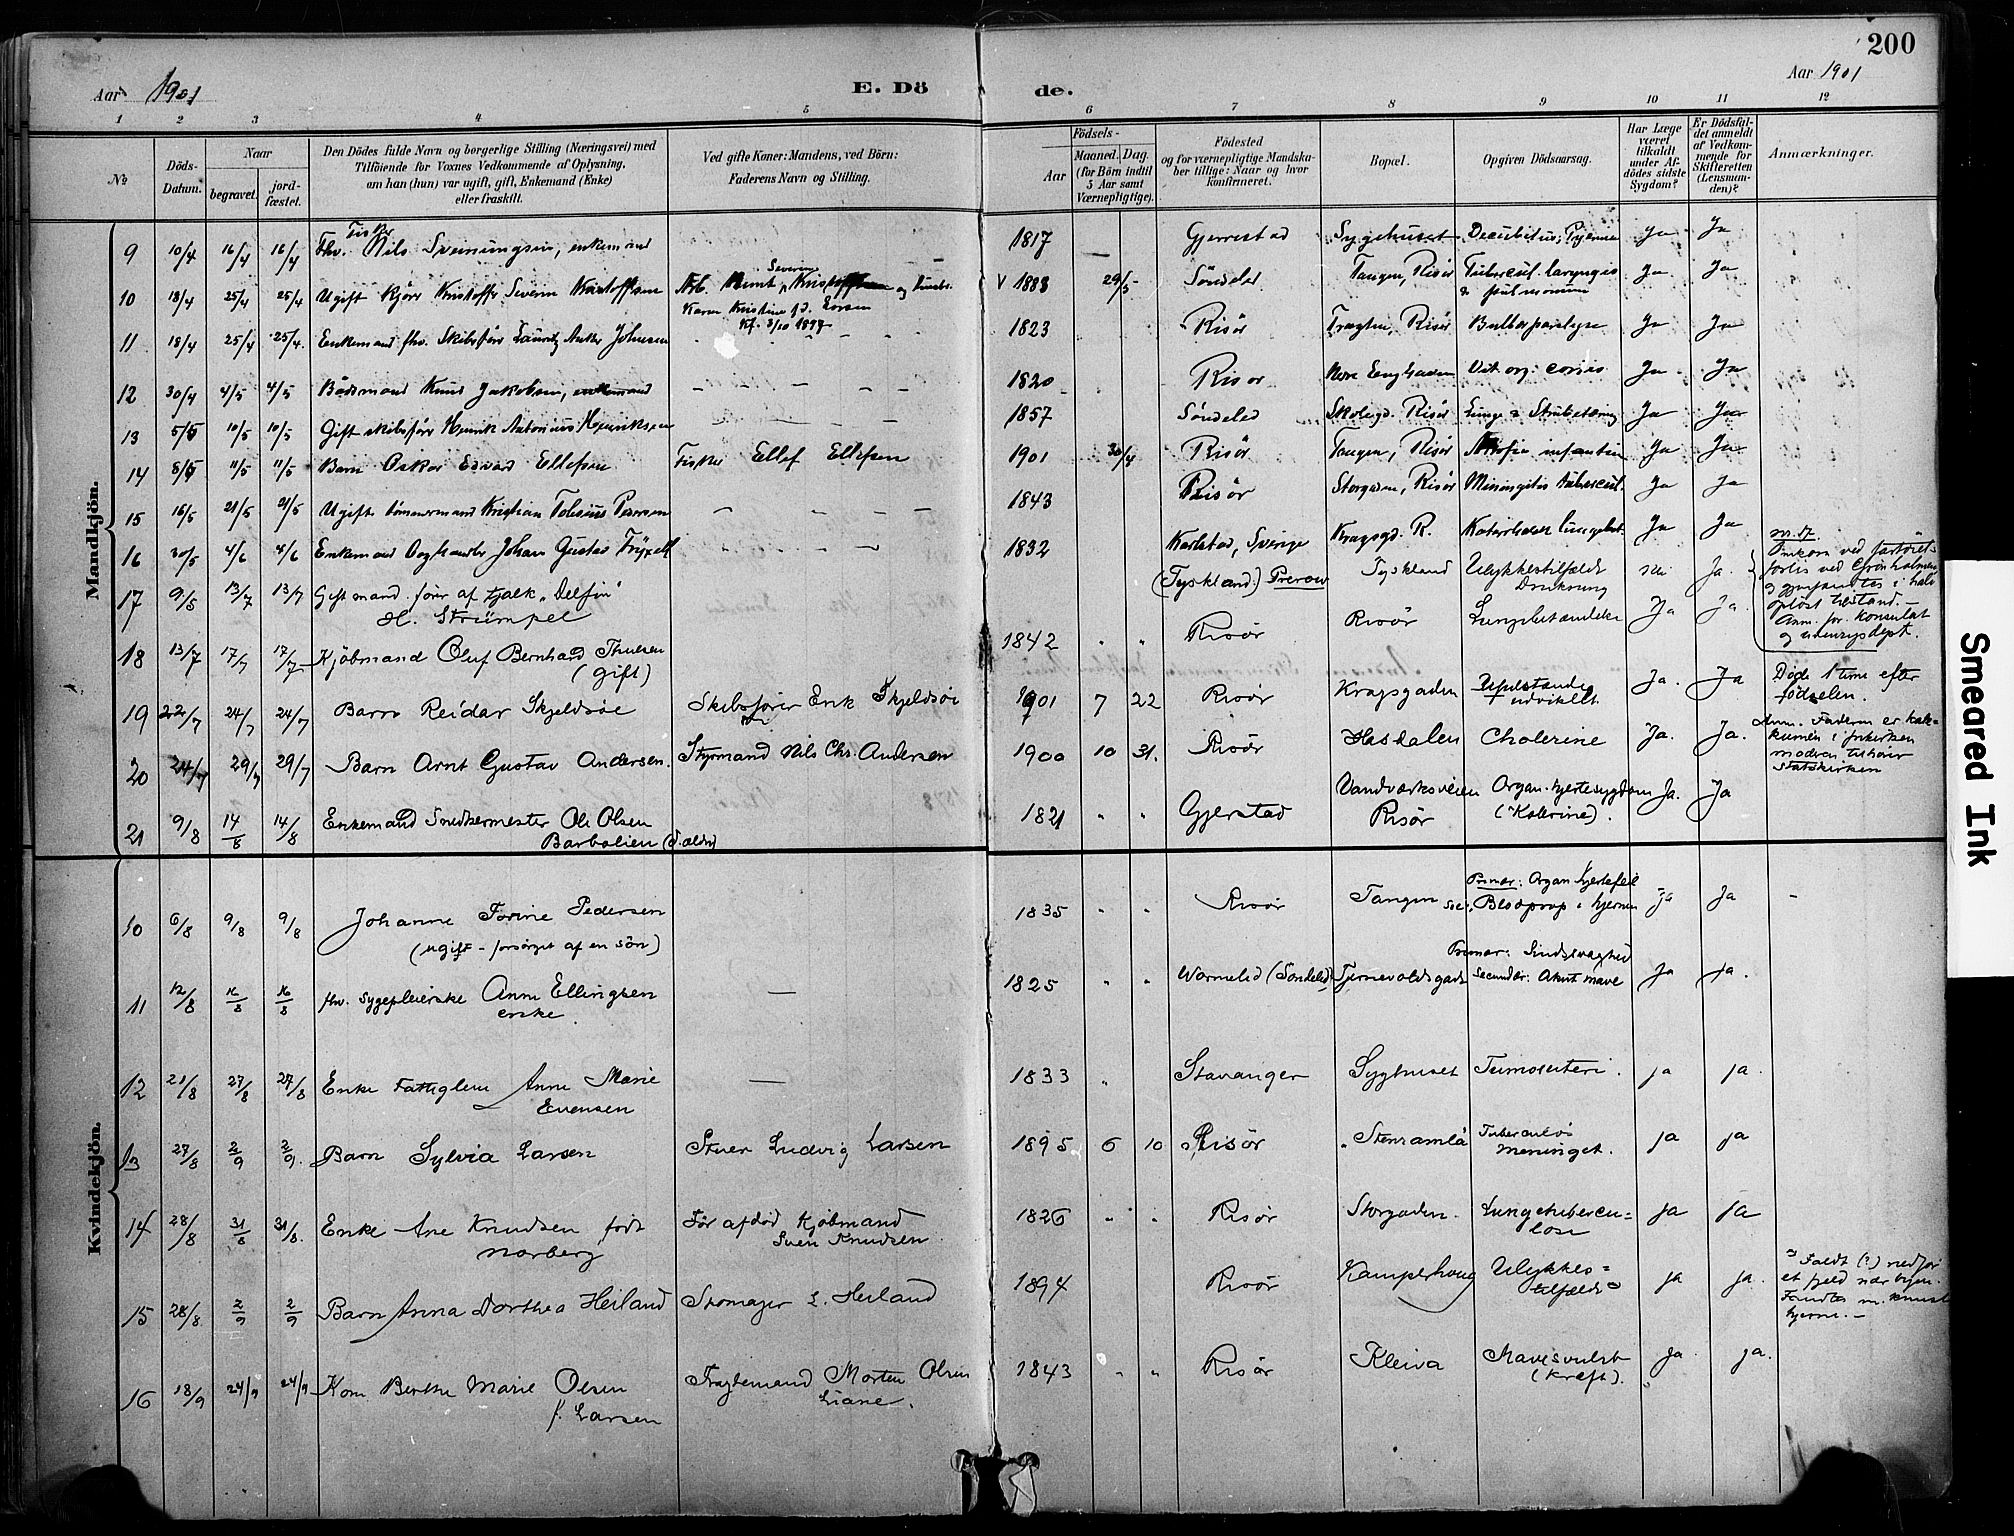 200
Aar 1901
E. Dö
de.
Aar 1901
1 2 3 4 5 6 7 8 9 10 11 12
No
Döds-Datum.
Naar
begravet.
jord-fæstet.
Den Dödes fulde Navn og borgerlige Stilling (Næringsvei) med
Tilföiende for Voxnes Vedkommende af Oplysning,
om han (hun) var ugift, gift, Enkemand (Enke)
eller fraskilt.
Ved gifte Koner: Mandens, ved Börn:
Faderens Navn og Stilling.
Födsels-
Aar
Maaned. Dag.
(for Börn indtil
5 Aar samt
Værnepligtige).
Födested
og for værnepligtige Mandska-
ber tillige: Naar og hvor
konfirmeret.
Bopæl.
Opgiven Dödsaarsag.
Har Læge
været
tilkaldt
under Af-
dödes sidste
Sygdom?
Er Dödsfal-
det anmeldt
af Vedkom-
mende for
Skifteretten
(Lensman-
den)?
Anmærkninger.
Mandkjön.
9 10/4 16/4 16/4 Fhv. Fisker Nils Sveinungsen, enkemand 1817 Gjerrestad Sygehuset Decubitus, Pyæmia Ja Ja
10 18/4 25/4 25/4 Ugift Kristoffer Severin Kristoffersen Arb. Severin og hustru 1888 29/5 Söndeled Tangen, Risör Tubercul. laryngis Ja Ja
& pulmonum
Karen Kristine fd. Larsen
Kf. 3/10 1897
11 18/4 25/4 25/4 Enkemand fhv. Skibsförer Lauritz Anker Johnsen 1823 Risör Tragten, Risör Bulbærparalyse Ja Ja
12 30/4 4/5 4/5 Baadsmand Knud Jakobsen, enkemand 1820 Risör Vit. org. cordis Ja Ja
13 5/5 10/5 10/5 Gift skibsförer Henrik Antonius Henriksen 1857 Söndeled Skolegd. Risör Lunge & Strubetæring Ja Ja
14 8/5 11/5 11/5 Barn Oskar Edvard Ellefsen Fisker Ellef Ellefsen 1901 30/4 Risör Tangen, Risör Atrofia infantum Ja Ja
15 16/5 21/5 21/5 Ugift tömmermand Kristian Tobias Petersen 1843 Risör Storgaden, Risör Miningitis tubercul. Ja Ja
16 30/5 4/6 4/6 Enkemand Johan Gustav Fryxell 1832 Karlstad, Sverige Kragsgd. R. Katarrhalsk lungebet. Ja Ja
17 9/5 13/7 13/7 Gift mand, förer af tjalk "Delfin" (Tyskland) Prerow Tyskland Ulykkestilfælde Nei Ja.
H. Strümpel Drukning
nr. 17.
Omkom ved fartöiets
forlis ved Grönholmen
og gjenfandtes i halv
oplöst tilstand. –
Anm. for konsulat
og udenrigsdept.
18 13/7 17/7 17/7 Kjöbmand Oluf Bernhard Thuesen 1842 Risör Risör Lungebetændelse Ja Ja.
(gift)
19 22/7 24/7 24/7 Barn Reidar Skjeldsöe Skibsförer Erik Skjeldsöe 1901 7 22 Risör Kragsgaden Ufuldstændig Ja. Ja Döde 1 time efter
udviklet. födselen.
20 24/7 29/7 29/7 Barn Arnt Gustav Andersen. Styrmand Nils Chr. Andersen 1900 10 31. Risör Hasdalen Cholerine Ja. Ja.
Anm. Faderen er
i frikirken
moderen tilhörer
Statskirken
21 9/8 14/8 14/8 Enkemand Snedkermester Ole Olsen 1821 Gjerstad Vandværksveien Organ. hjertesygdom Ja. Ja
Barbolien Risör (Kolerine).
Kvindekjön.
10 6/8 9/8 9/8 Johanne Torine Pedersen 1835 Risör Tangen Primær: Organ. Hjertefeil Ja Ja
(ugift - forsörget af en sön) Sec. Blodprop i hjernen
11 12/8 16/8 16/8 fhv. sygepleierske Anne Ellingsen 1825 Warmelid (Söndeled) Tjernevoldsgade Primær: Sindssvaghed Ja Ja.
enke. Secundær: Akut mave
12 21/8 27/8 27/8 Enke Fattiglem Anne Marie 1833 Stavanger Syghuset Tumor uteri. Ja Ja.
Evensen
13 27/8 2/9 2/9. Barn Sylvia Larsen Stuer Ludvig Larsen 1895 6 10 Risör Stensamlå Tuberculös Ja Ja
meninget.
14 28/8 31/8 31/8. Enke Ane Knudsen, födt För afdöd Kjöbmand 1826 Risör Storgaden. Lungetubercu= Ja Ja
Norberg Sven Knudsen. lose
15 28/8 2/9 2/9 Barn Anna Dorthea Heiland Skomager L. Heiland 1894 Risör Kamperhoug Ulykkes= Ja Ja.
tilfælde
Faldt (?) nedfor
et fjeld nær byen.
Fandtes m. knust
hjerne. –
16 18/9 24/9 24/9 Kone Berthe Marie Olsen Fragtemand Morten Olsen 1843 Risör Kleiva Mavesvulst Ja Ja.
f. Larsen Liane. (kræft).
Smeared Ink